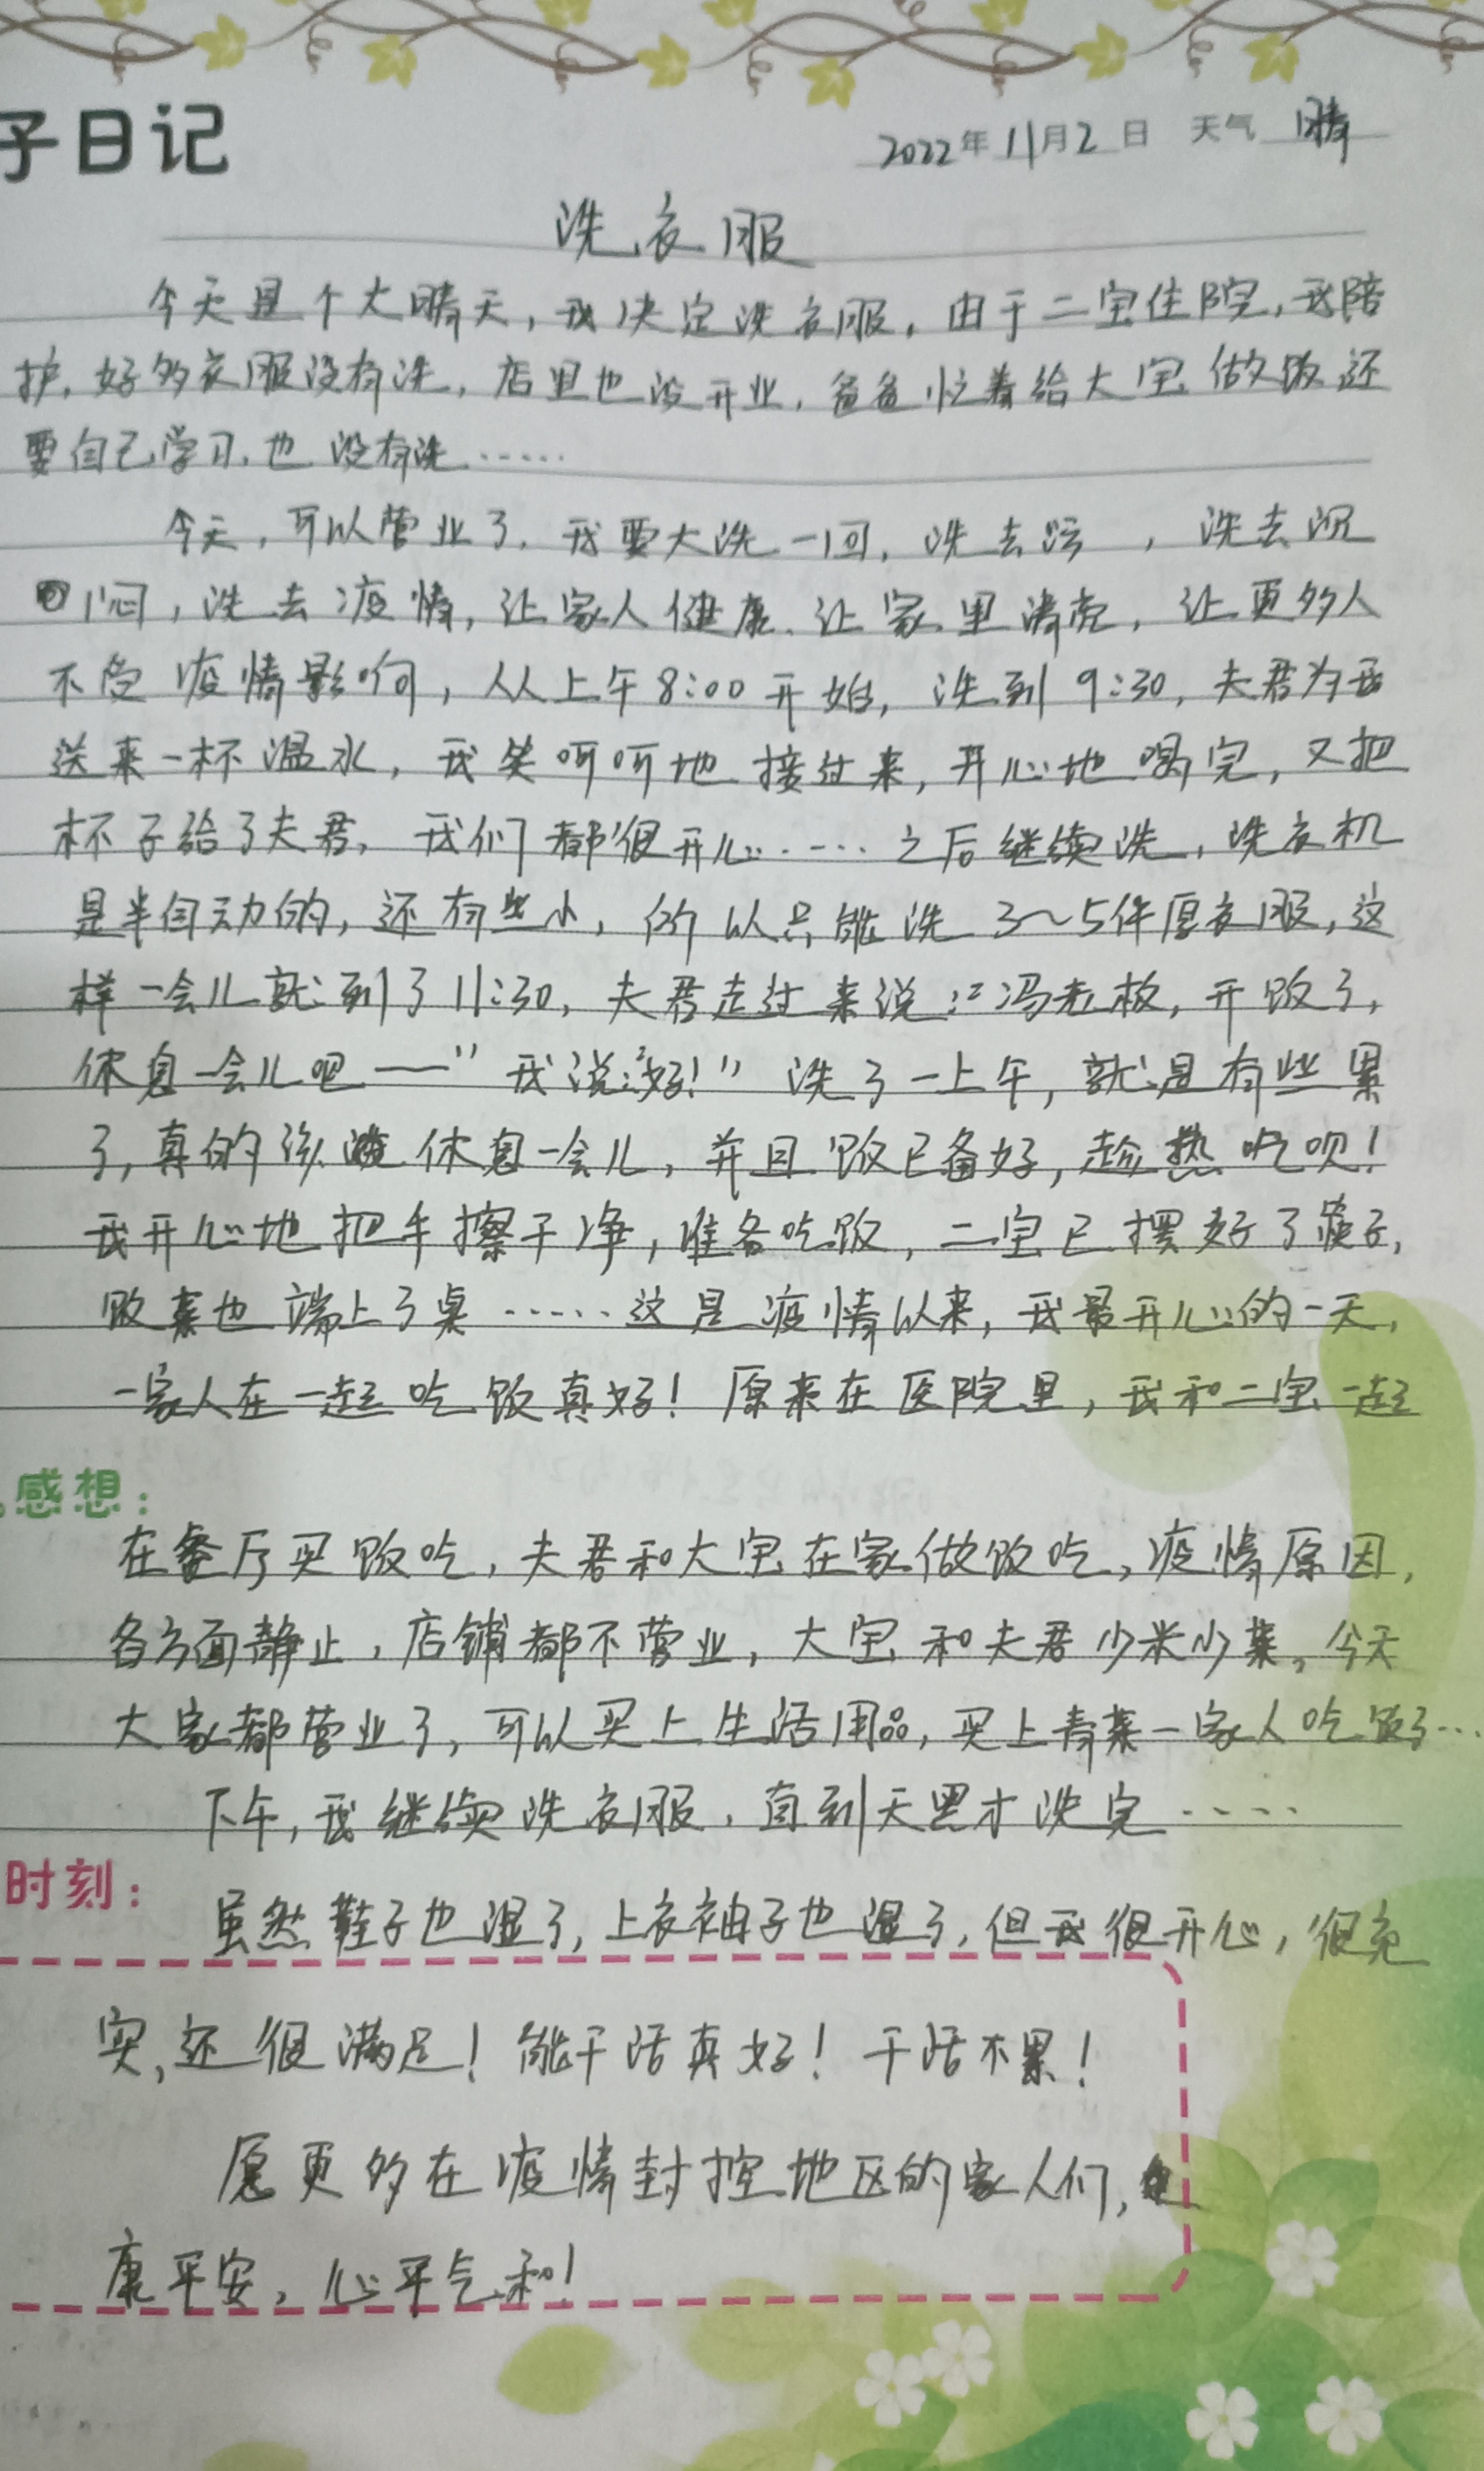 子日记
2022年11月2日 天气 晴
洗衣服
今天是个大晴天，我决定洗衣服，由于二宝住院，我陪
护，好多衣服没有洗，店里也没开业，爸爸忙着给大宝做饭还
要自己学习，也没有洗……
今天，可以营业了，我要大洗一回，洗去污，洗去沉
闷，洗去疫情，让家人健康、让家里满亮，让更多人
不受疫情影响，从上午8:00开始，洗到9:30，夫君为我
送来一杯温水，我笑呵呵地接过来，开心地喝完，又把
杯子给了夫君，我们都很开心……之后继续洗，洗衣机
是半自动的，还有些小，所以只能洗3～5件厚衣服，这
样一会儿就到了11:30，夫君走过来说：“冯老板，开饭了，
休息一会儿吧——”我说：“好！”洗了一上午，就是有些累
了，真的该休息一会儿，并且饭已备好，趁热吃呗！
我开心地把手擦干净，准备吃饭，二宝已摆好了筷子，
饭菜也端上了桌……这是疫情以来，我最开心的一天，
一家人在一起吃饭真好！原来在医院里，我和二宝一起
感想：
在餐厅买饭吃，夫君和大宝在家做饭吃，疫情原因，
各方面静止，店铺都不营业，大宝和夫君少米少菜。今天
大家都营业了，可以买上生活用品，买上青菜一家人吃饭了…
下午，我继续洗衣服，直到天黑才洗完……
时刻：
虽然鞋子也湿了，上衣袖子也湿了，但我很开心，很充
实，还很满足！能干活真好！干活不累！
愿更多在疫情封控地区的家人们，
康平安，心平气和！